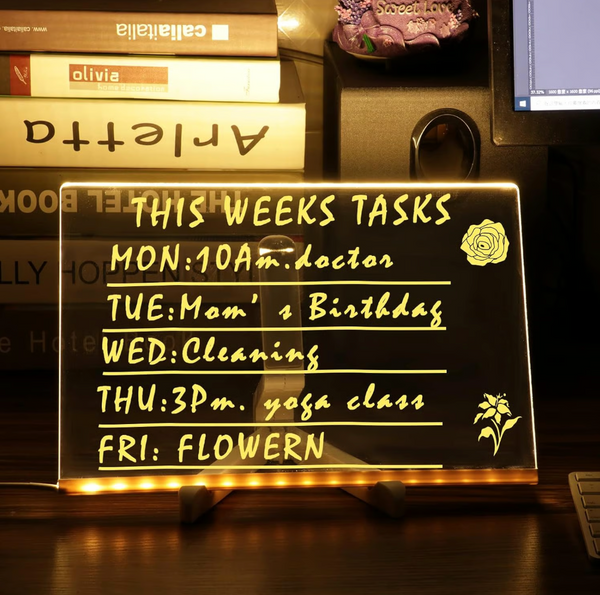 caliaitalia
caliaitalia
olivia
Arletta
THE HOTEL BOOK
Sweet Love
THIS WEEKS TASKS
MON:10Am.doctor
TUE:Mom's Birthdag
WED:Cleaning
THU:3Pm. yoga class
FRI: FLOWERN